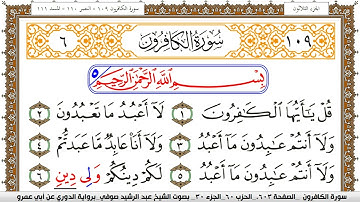 الجزء الثلاثون
سورة الكافرون ١٠٩ - النصر ١١٠ - المسد ١١١
١٠٩ سُورَةُ الْكَافِرُونَ ٦
بِسْمِ اللَّهِ الرَّحْمَٰنِ الرَّحِيمِ
قُلْ يَٰٓأَيُّهَا الْكَٰفِرُونَ ١ لَآ أَعْبُدُ مَا تَعْبُدُونَ ٢
وَلَآ أَنتُمْ عَٰبِدُونَ مَآ أَعْبُدُ ٣ وَلَآ أَنَا۠ عَابِدٌ مَّا عَبَدتُّمْ ٤
وَلَآ أَنتُمْ عَٰبِدُونَ مَآ أَعْبُدُ ٥ لَكُمْ دِينُكُمْ وَلِى دِينِ ٦
سورة الكافرون .. الصفحة ٦٠٣ .. الحزب ٦٠ .. الجزء ٣٠ .. بصوت الشيخ عبد الرشيد صوفي .. برواية الدوري عن أبي عمرو